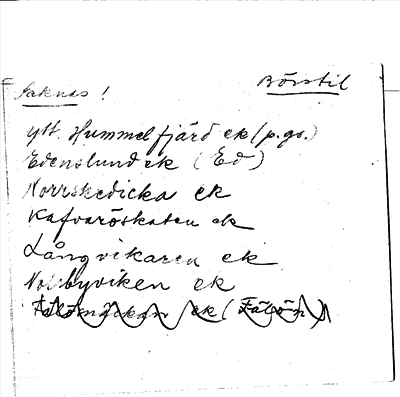 Saknas! Börstil
ytt. Hummelfjärd ek (p.gr.)
Edenslund ek (Ed)
Norrskedicka ek
Kafvaröskaten ek
Långvikaren ek
Norrbyviken ek
ek (Fälön)